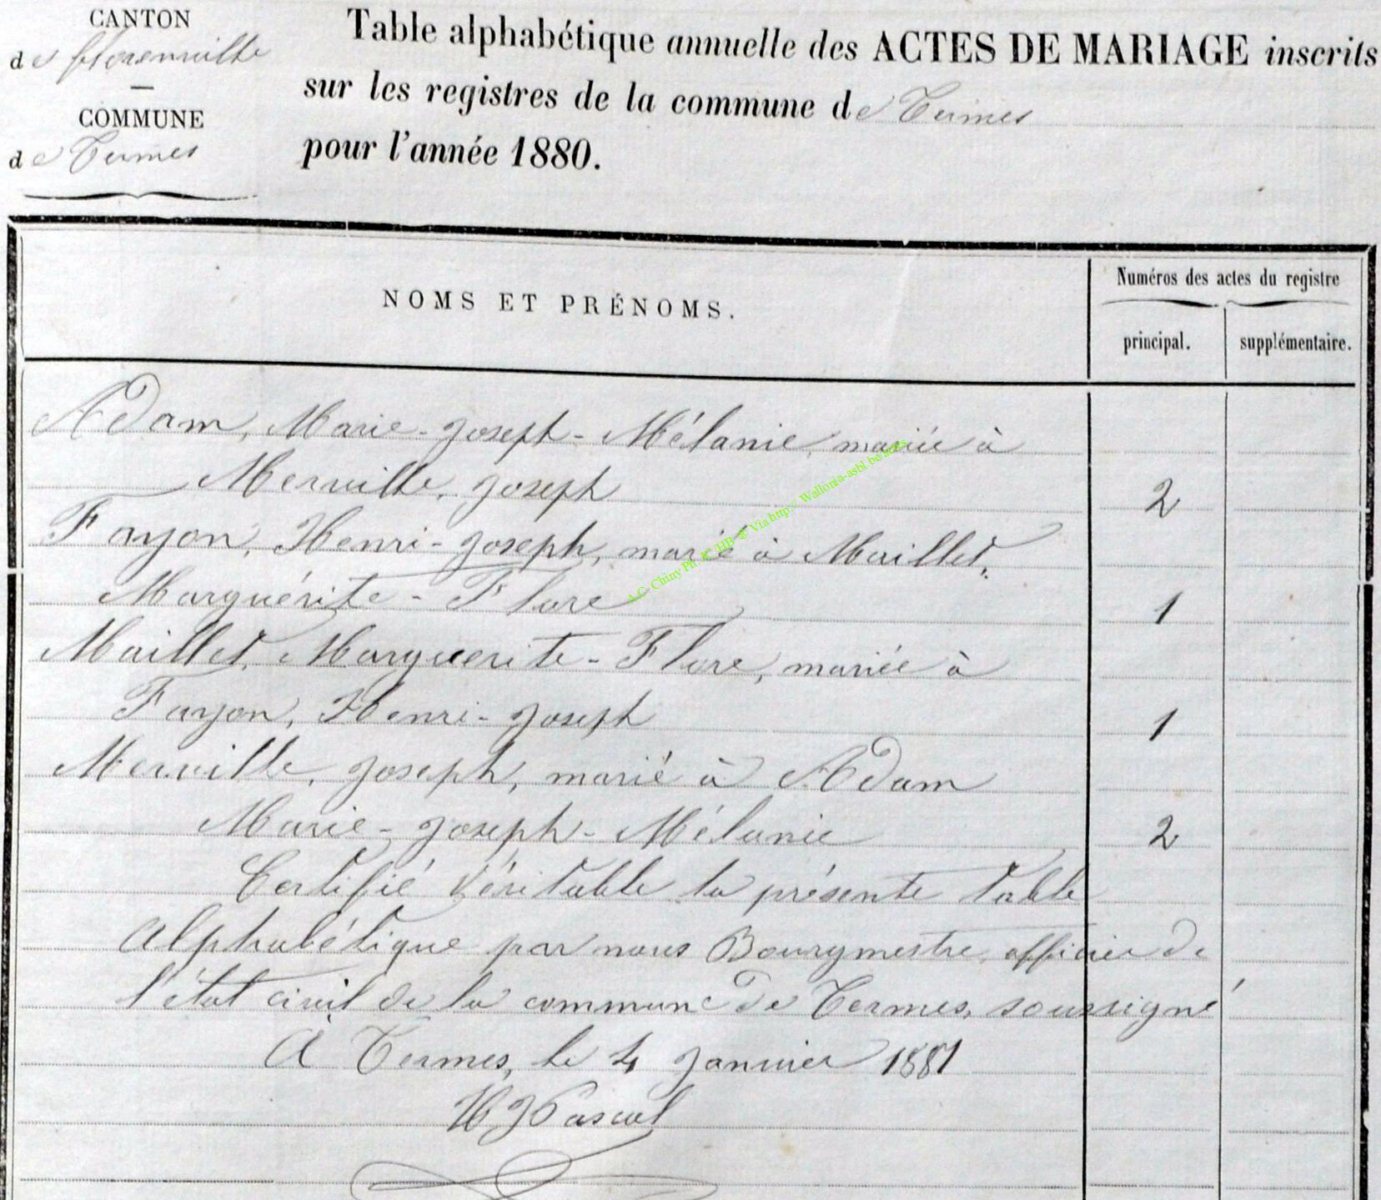 CANTON
de Florenville
COMMUNE
de Termes
Table alphabétique annuelle des ACTES DE MARIAGE inscrits
sur les registres de la commune de Termes
pour l'année 1880.
NOMS ET PRÉNOMS.
Numéros des actes du registre
principal.
supplémentaire.
Adam, Marie-Joseph-Mélanie, mariée à
Merville, Joseph 2
Fayon, Henri-Joseph, marié à Maillet,
Marguérite-Flore 1
Maillet, Marguerite-Flore, mariée à
Fayon, Henri-Joseph 1
Merville, Joseph, marié à Adam
Marie-Joseph-Mélanie 2
Certifié véritable la présente table
alphabétique par nous Bourgmestre, officier de
l'état civil de la commune de Termes, soussigné
A Termes, le 4 Janvier 1881
HJPascal
Chiny Via http: Wallonia-asbl.be